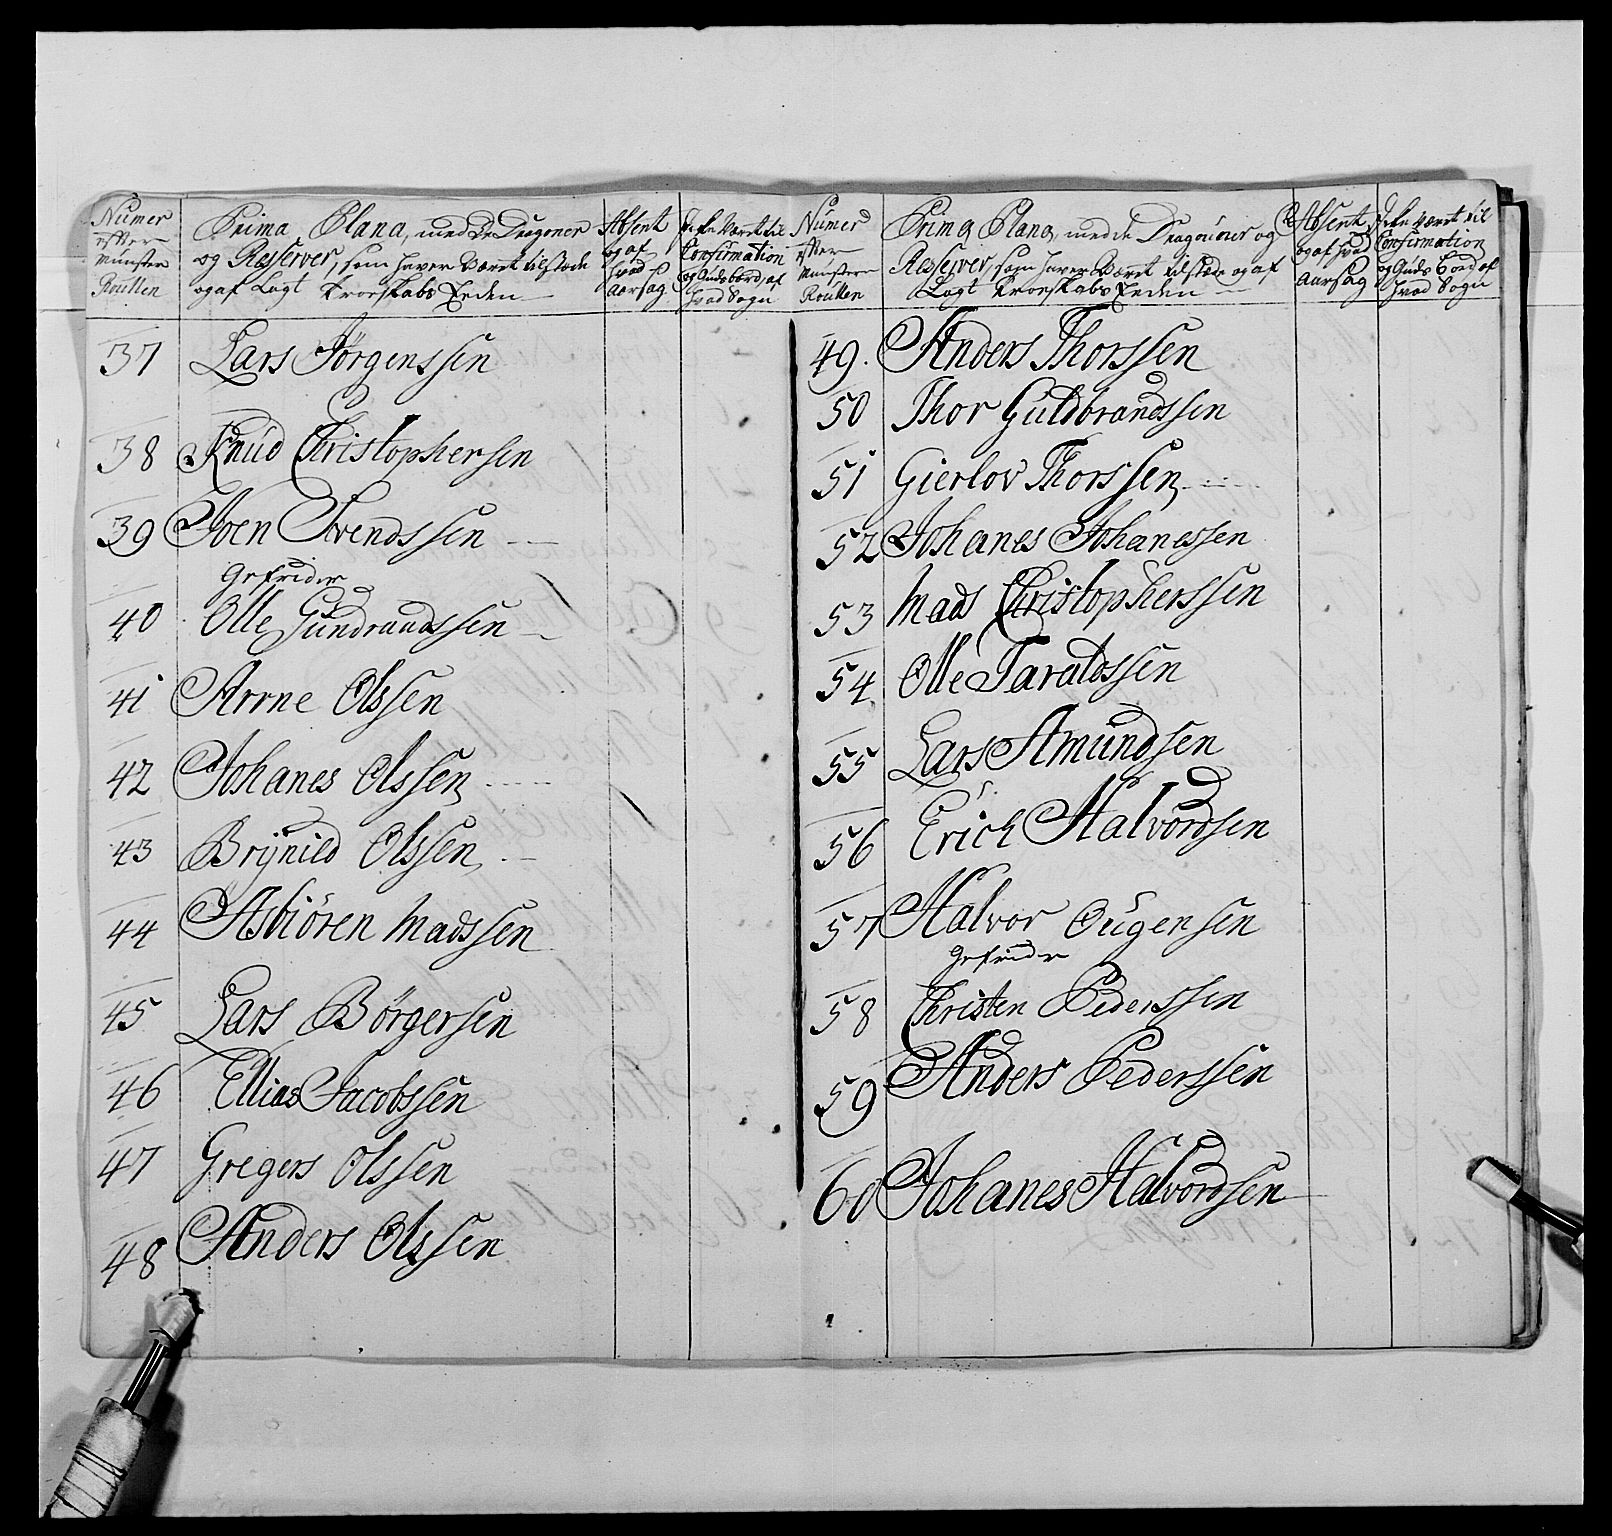 Numer
efter
Munster
Roullen
Prima Plana, med De Dragoner
og Resserver, som haver Været tilstæde
og af Lagt Troeskabs Eeden
Absent
og af
hvad
aarsag
Været til
Confirmation
og Guds bord af
hvad Sogn
37 Lars Jørgenssen
38 Knud Christophersen
39 Joen Svendssen
Gefrider
40 Olle Gundrandssen
41 Arrne Olssen
42 Johanes Olssen
43 Brÿnild Olssen
44 Asbiören Madssen
45 Lars Börgersen
46 Ellias Jacobssen
47 Gregers Olssen
48 Anders Olssen
Numer
efter
Munster
Roullen
Prima Plana, med de Dragouner og
Resserver, som haver Været tilstæde og af
Lagt Troeskabs Eeden
Absent
og af hvad
aarsag
Været til
Confirmation
og Guds Bord af
hvad Sogn
49. Anders Thorssen
50 Thor Guldbrandssen
51 Gierlov Thorssen
52 Johanes Johanessen
53 Mads Christopherssen
54 Olle Taraldssen
55 Lars Amundsen
56 Erich Halvordsen
57 Halvor Ougensen
Gefrider
58 Christen Pederssen
59 Anders Pederssen
60 Johanes Halvordsen